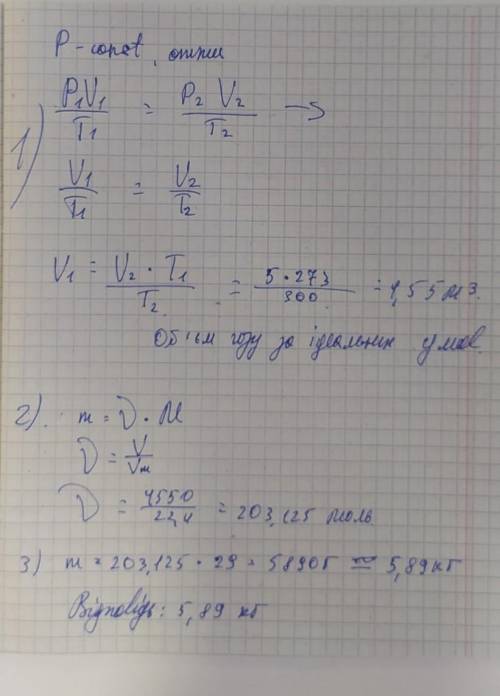 P - const, отже
1) P₁V₁/T₁ = P₂V₂/T₂ →
V₁/T₁ = V₂/T₂
V₁ = V₂ · T₁/T₂ = 5 · 273/300 = 4,55 м3.
Обʼєм газу за ідеальних умов.
2). m = ν · M
ν = V/Vm
ν = 4550/22,4 = 203,125 моль
3) m = 203,125 · 29 = 5890г ≈ 5,89кг
Відповідь: 5,89 кг